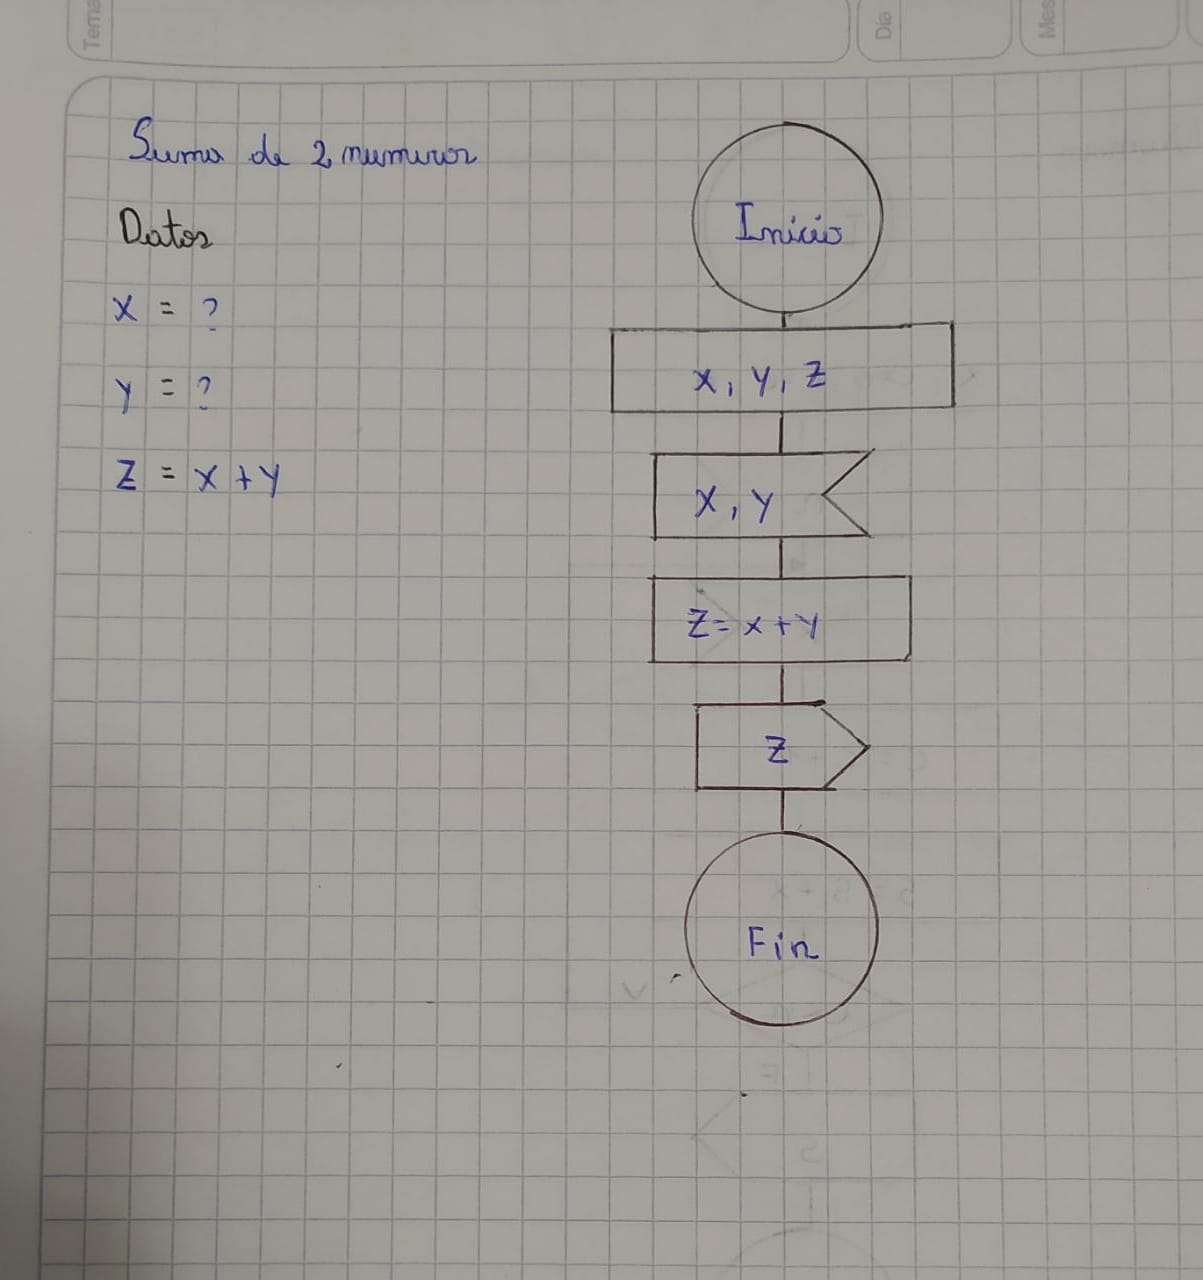 Tema
Dia
Mes
Suma de 2 numeros
Datos
X = ?
Y = ?
Z = X + Y
Inicio
X, Y, Z
X, Y
Z = X + Y
Z
Fin